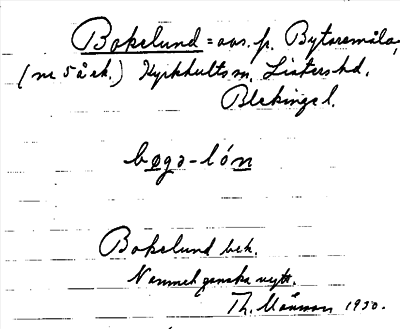 Bokelund = avs. p. Bytaremåla,
(nr 5 å ek.) Kyrkhults sn. Listers hd.
Blekinge l.
bøgə-lón
Bokelund bek.
Namnet ganska nytt.
Th. Månsson 1930.